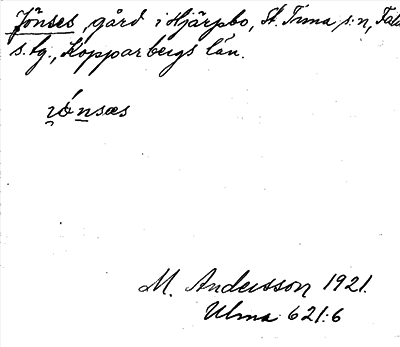 Jönses, gård i Hjärpbo, St. Tuna s:n, Falu
s. tg., Kopparbergs län.
jönsæs
M. Andersson 1921.
Ulma 621:6